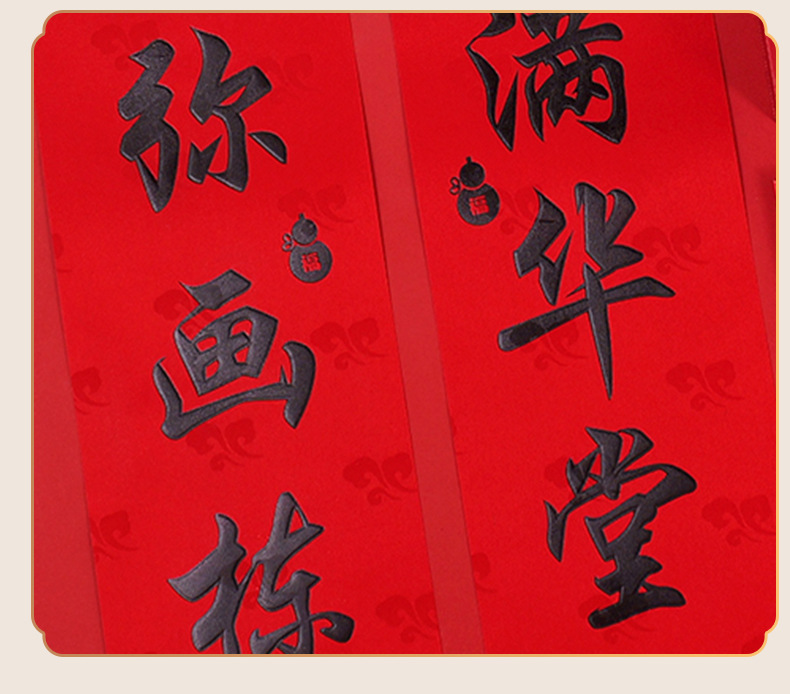 满华堂
福
弥画栋
福